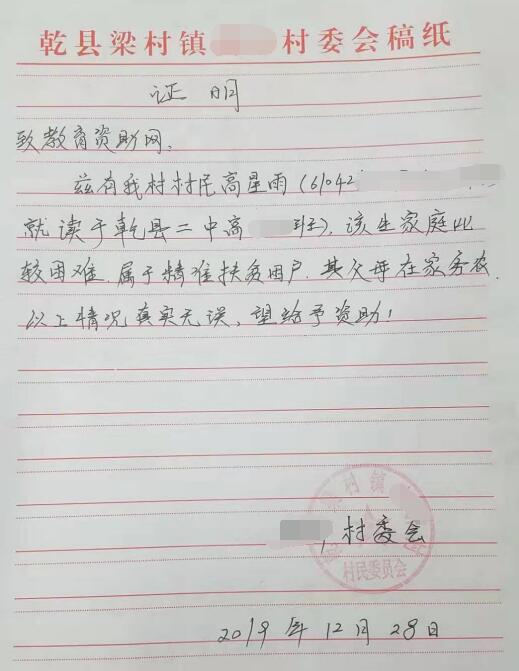 乾县梁村镇 村委会稿纸
证 明
致教育资助网,
兹有我村村民高星雨(61042
就读于乾县二中高 班),该生家庭比
较困难.属于精准扶贫困户.其父母在家务农.
以上情况真实无误,望给予资助!
梁村镇
村委会
村民委员会
2019年12月28日